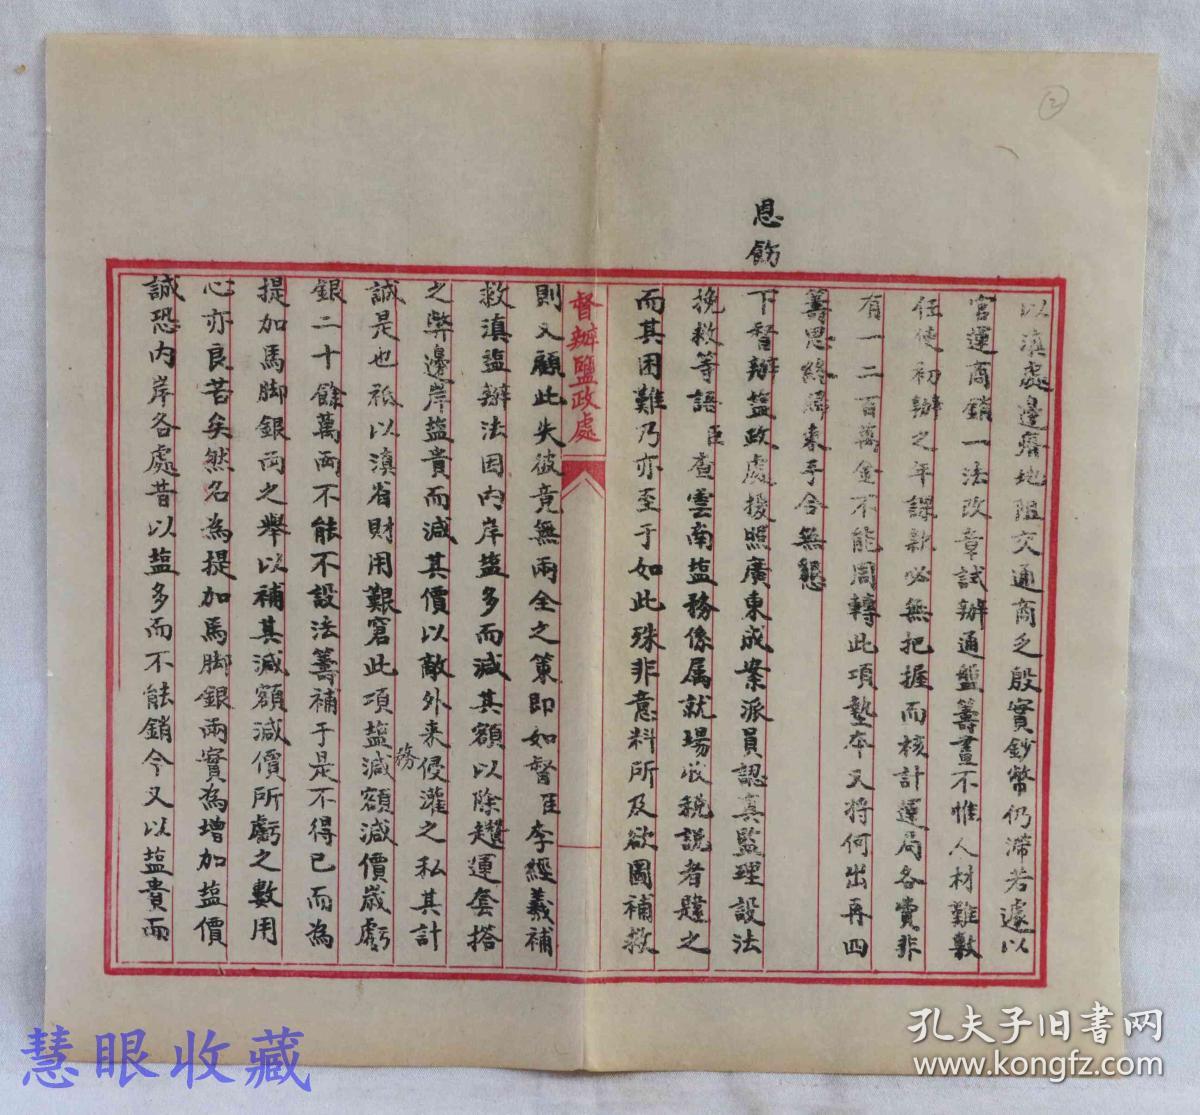 ②
以滇處邊瘠地阻交通商乏殷實鈔幣仍滯若遽以
官運商銷一法改章試辦通盤籌畫不惟人材難敷
任使初辦之年課款必無把握而核計運局各費非
有一二百萬金不能周轉此項墊本又將何出再四
籌思終歸束手合無懇
恩飭
下督辦塩政處援照廣東成案派員認真監理設法
挽救等語臣查雲南塩務係属就場收稅説者題之
而其困難乃亦至于如此殊非意料所及欲圖補救
督辦鹽政處
則又顧此失彼竟無兩全之策即如督臣李經羲補
救滇塩辦法因內岸塩多而減其額以除趲運套搭
之弊邊岸塩貴而減其價以敵外來侵灌之私其計
誠是也祇以滇省財用艱窘此項塩務減額減價歲虧
銀二十餘萬兩不能不設法籌補于是不得已而為
提加馬脚銀両之舉以補其減額減價所虧之數用
心亦良苦矣然名為提加馬脚銀兩實為增加塩價
誠恐內岸各處昔以塩多而不能銷今又以塩貴而
慧眼收藏
孔夫子旧書网
www.kongfz.com